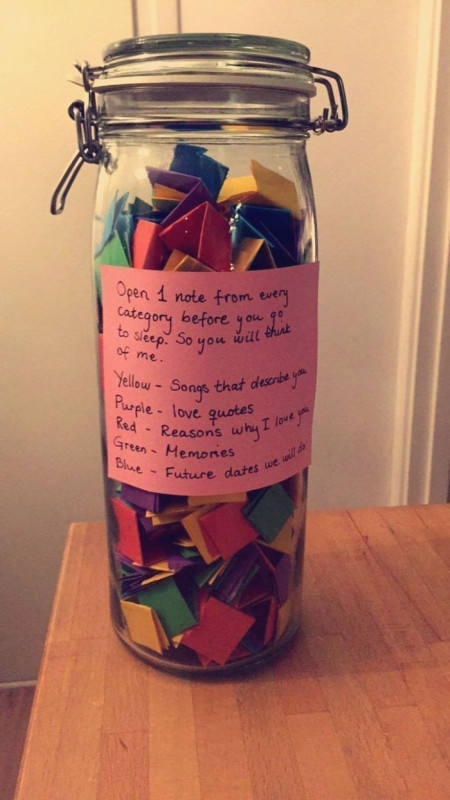 Open 1 note from every
category before you go
to sleep. So you will think
of me.
Yellow - Songs that describe you
Purple - love quotes
Red - Reasons why I love you
Green - Memories
Blue - Future dates we will do